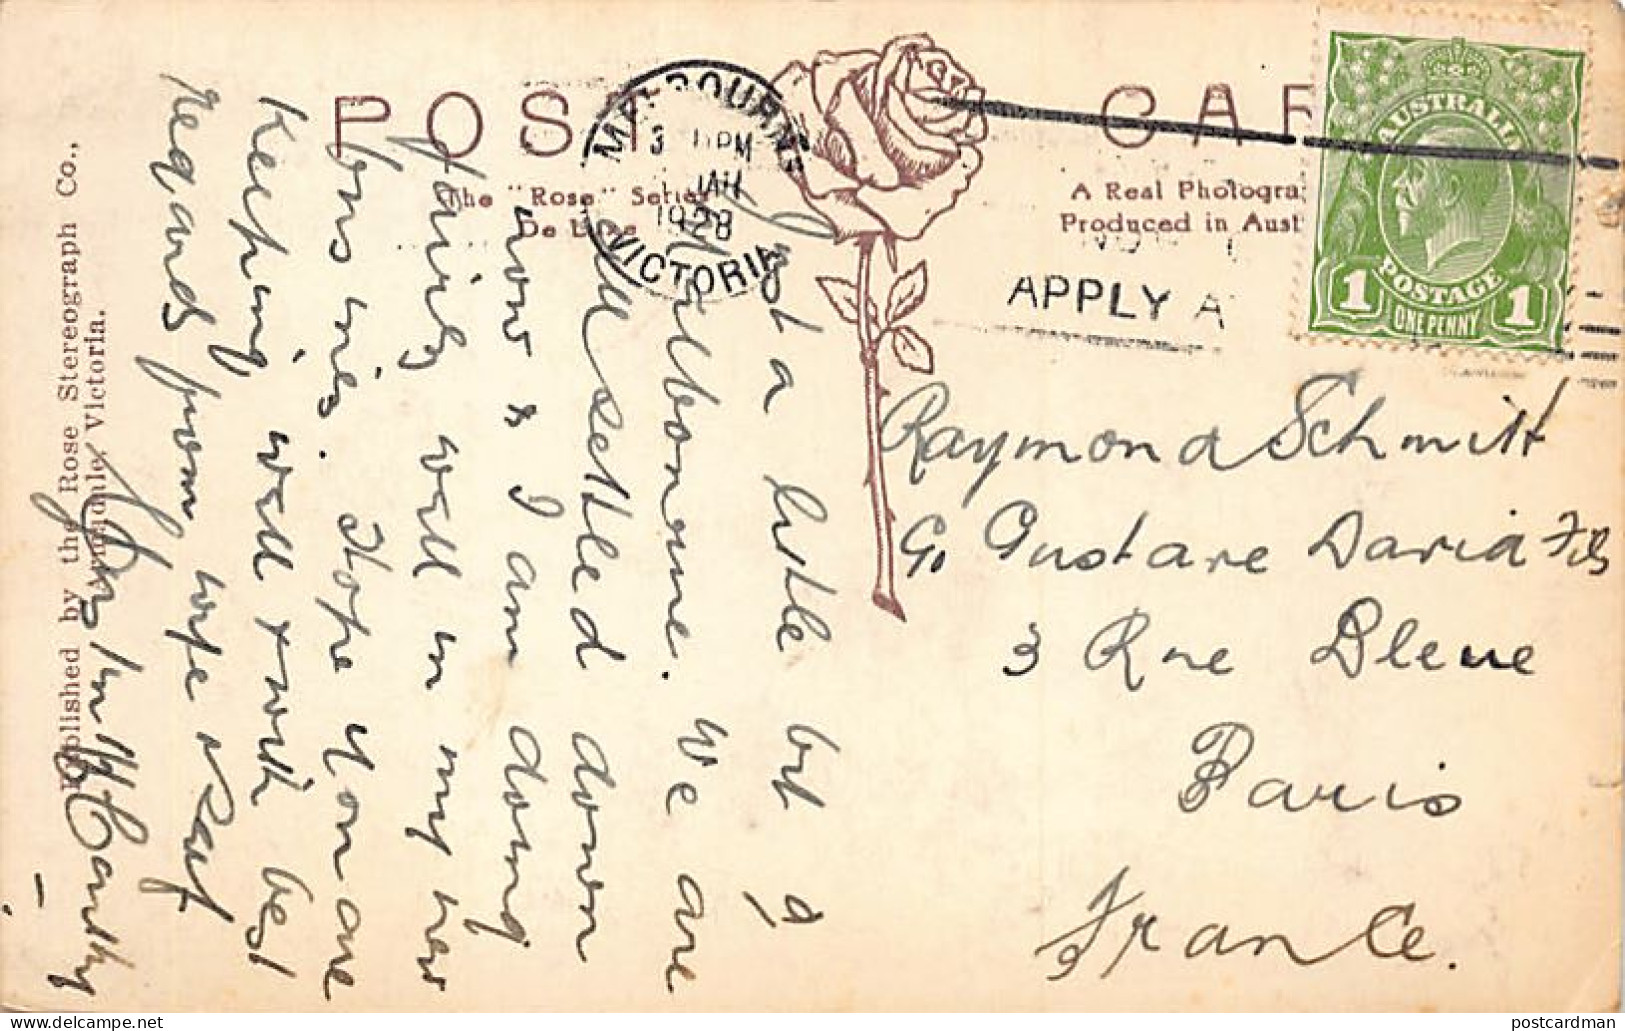 POST CAR
The "Rose" Series
De Luxe
A Real Photogra
Produced in Aust
MELBOURNE
3 PM
JAN
1928
VICTORIA
APPLY A
AUSTRALIA
POSTAGE
1 ONE PENNY 1
Published by the Rose Stereograph Co.,
Armadale, Victoria.
Just a little bit of
Melbourne. We are
all settled down
now & I am doing
fairly well in my new
business. Hope you are
keeping well & with best
regards from wife & self
McCarthy
Raymond Schmitt
C/o Gustave Daria Fils
3 Rue Bleue
Paris
France.
postcardman